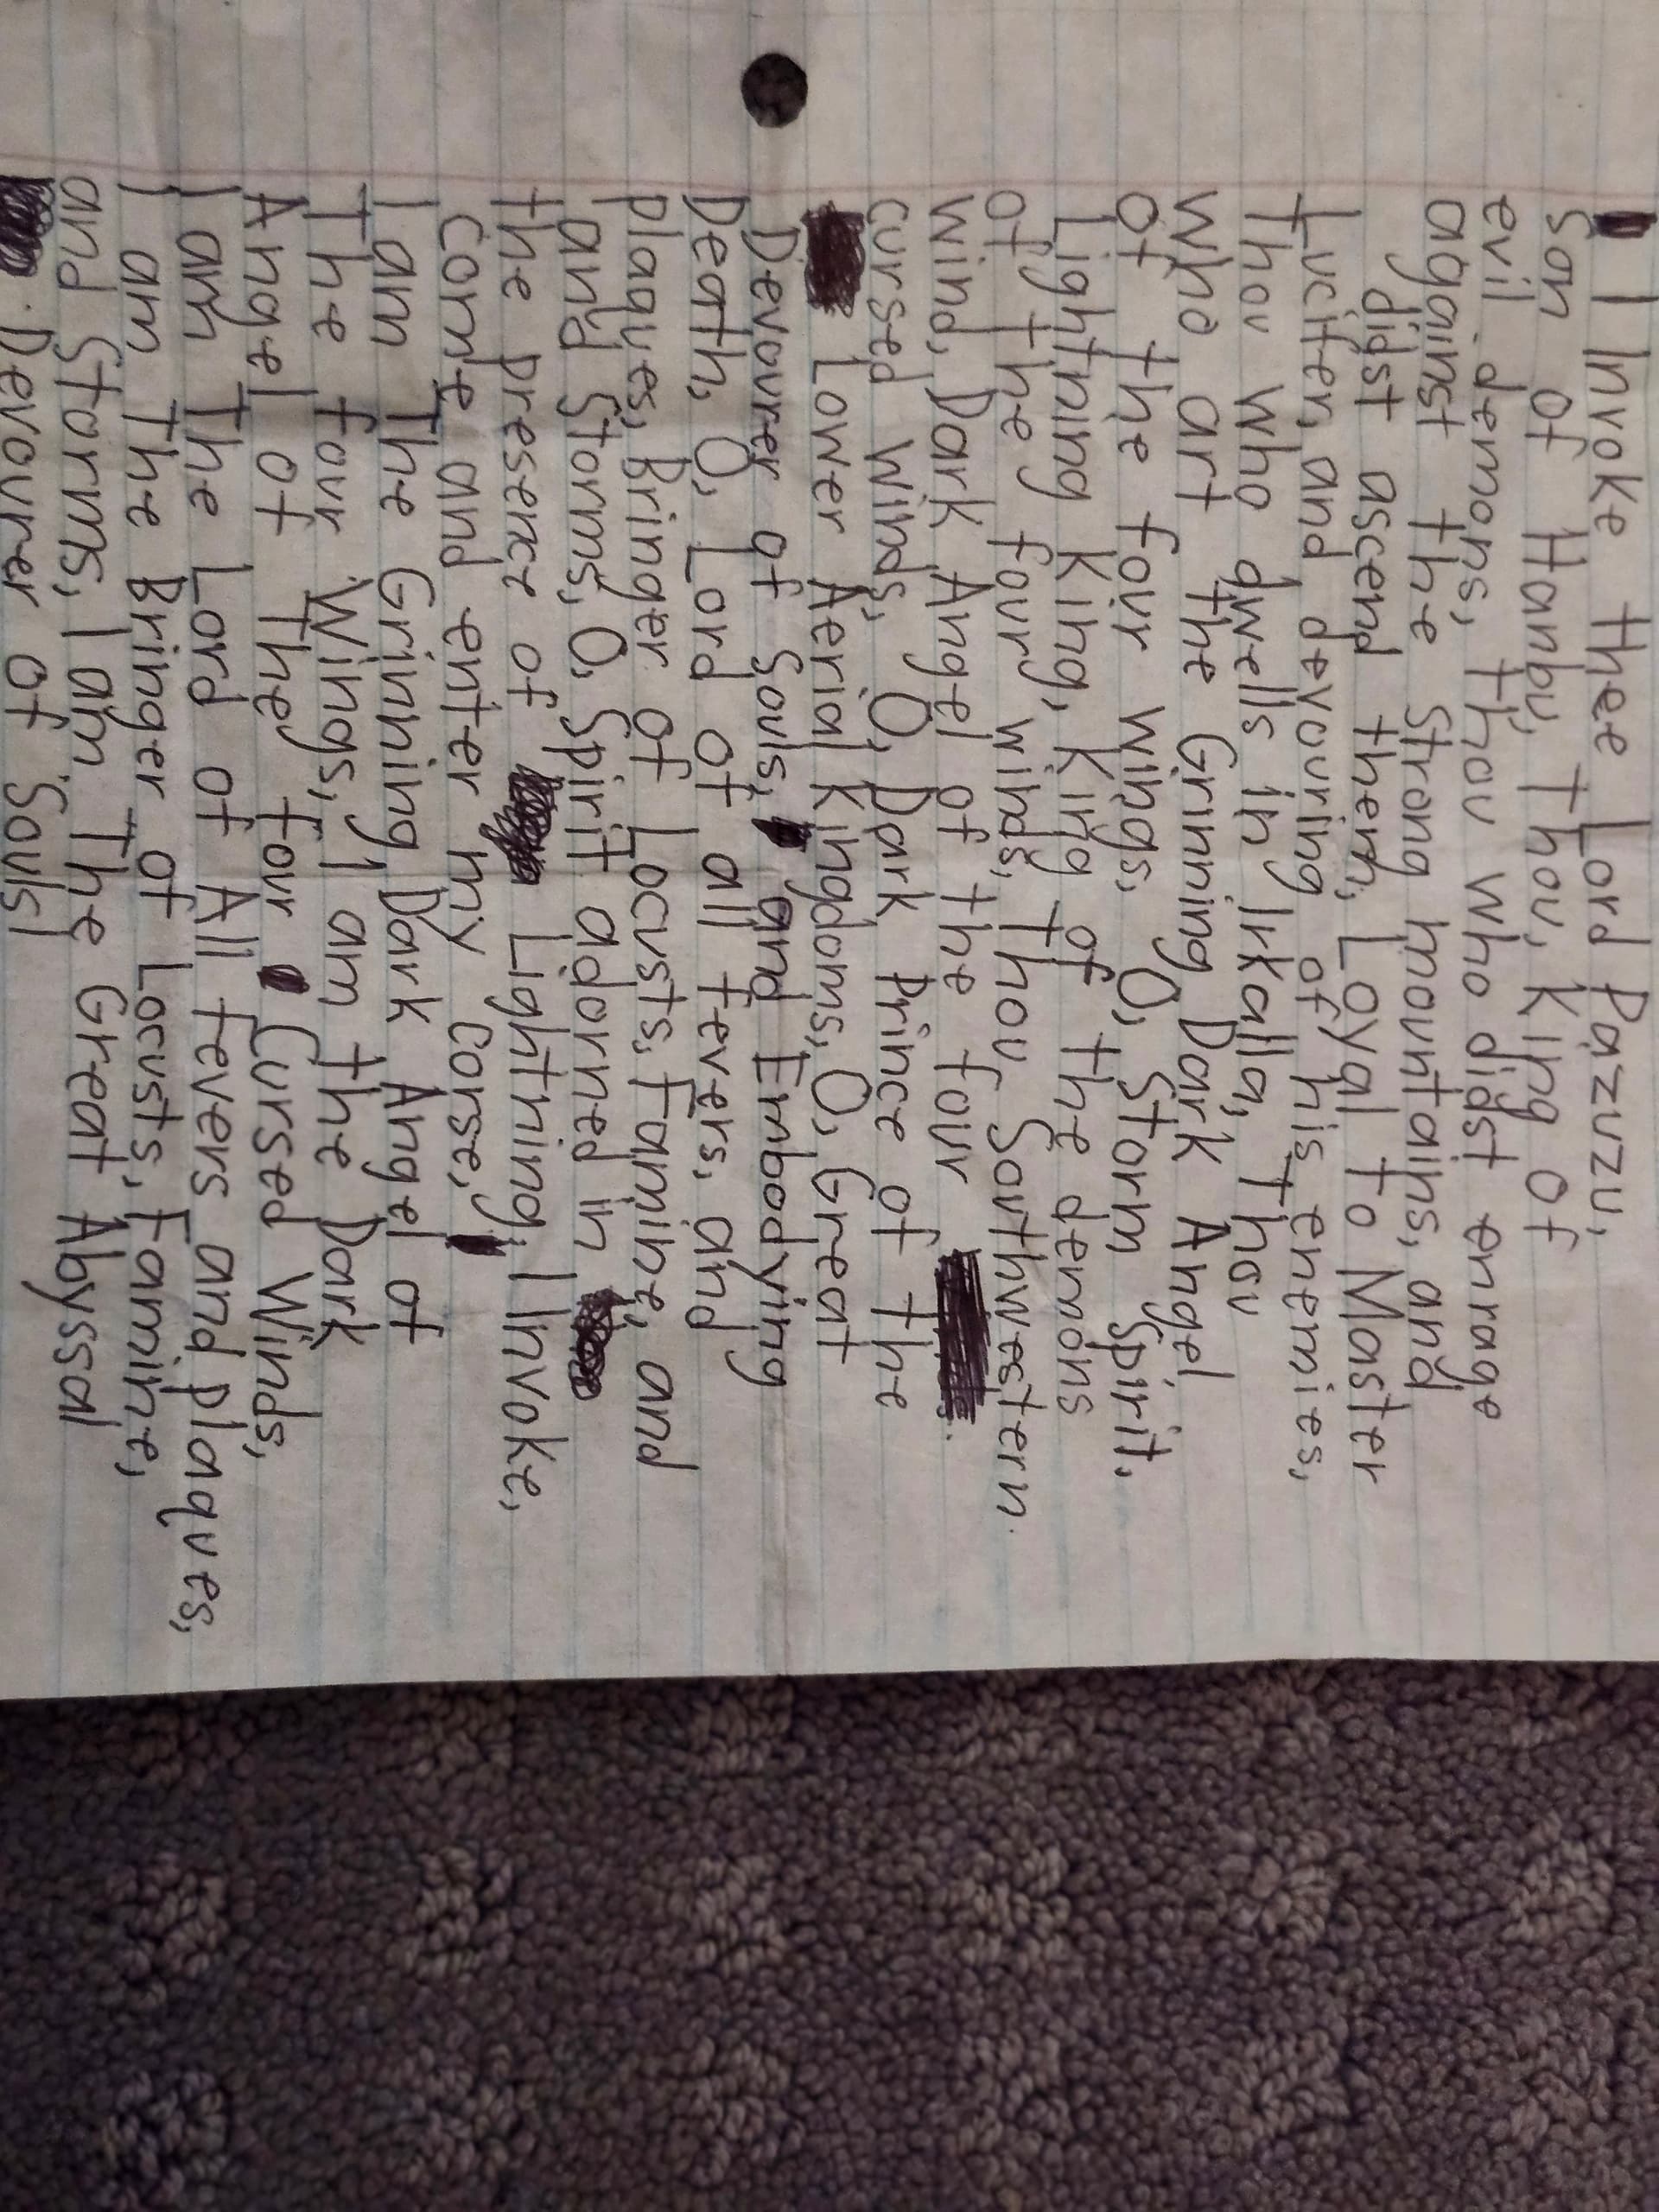 I Invoke thee Lord Pazuzu,
Son of Hanbu, Thou, King of
evil demons, thou who didst enrage
against the Strong mountains, and
didst ascend them, Loyal to Master
Lucifer, and devouring of his enemies,
thou who dwells in Irkalla, Thou
who art the Grinning Dark Angel
of the four wings, O, Storm Spirit,
Lightning King, King of the demons
of the four winds, Thou Southwestern
wind, Dark Angel of the four
cursed winds, O, Dark Prince of the
Lower Aerial Kingdoms, O, Great
Devourer of Souls, and Embodying
Death, O, Lord of all fevers, and
plagues, Bringer of Locusts, Famine, and
and Storms, O, Spirit adorned in
the presence of Lightning, I Invoke,
come and enter my corse,
I am The Grinning Dark Angel of
The four Wings, I am the Dark
Angel of the four Cursed Winds,
I am The Lord of All fevers and plagues,
I am the Bringer of Locusts, Famine,
and Storms, I am The Great Abyssal
Devourer of Souls